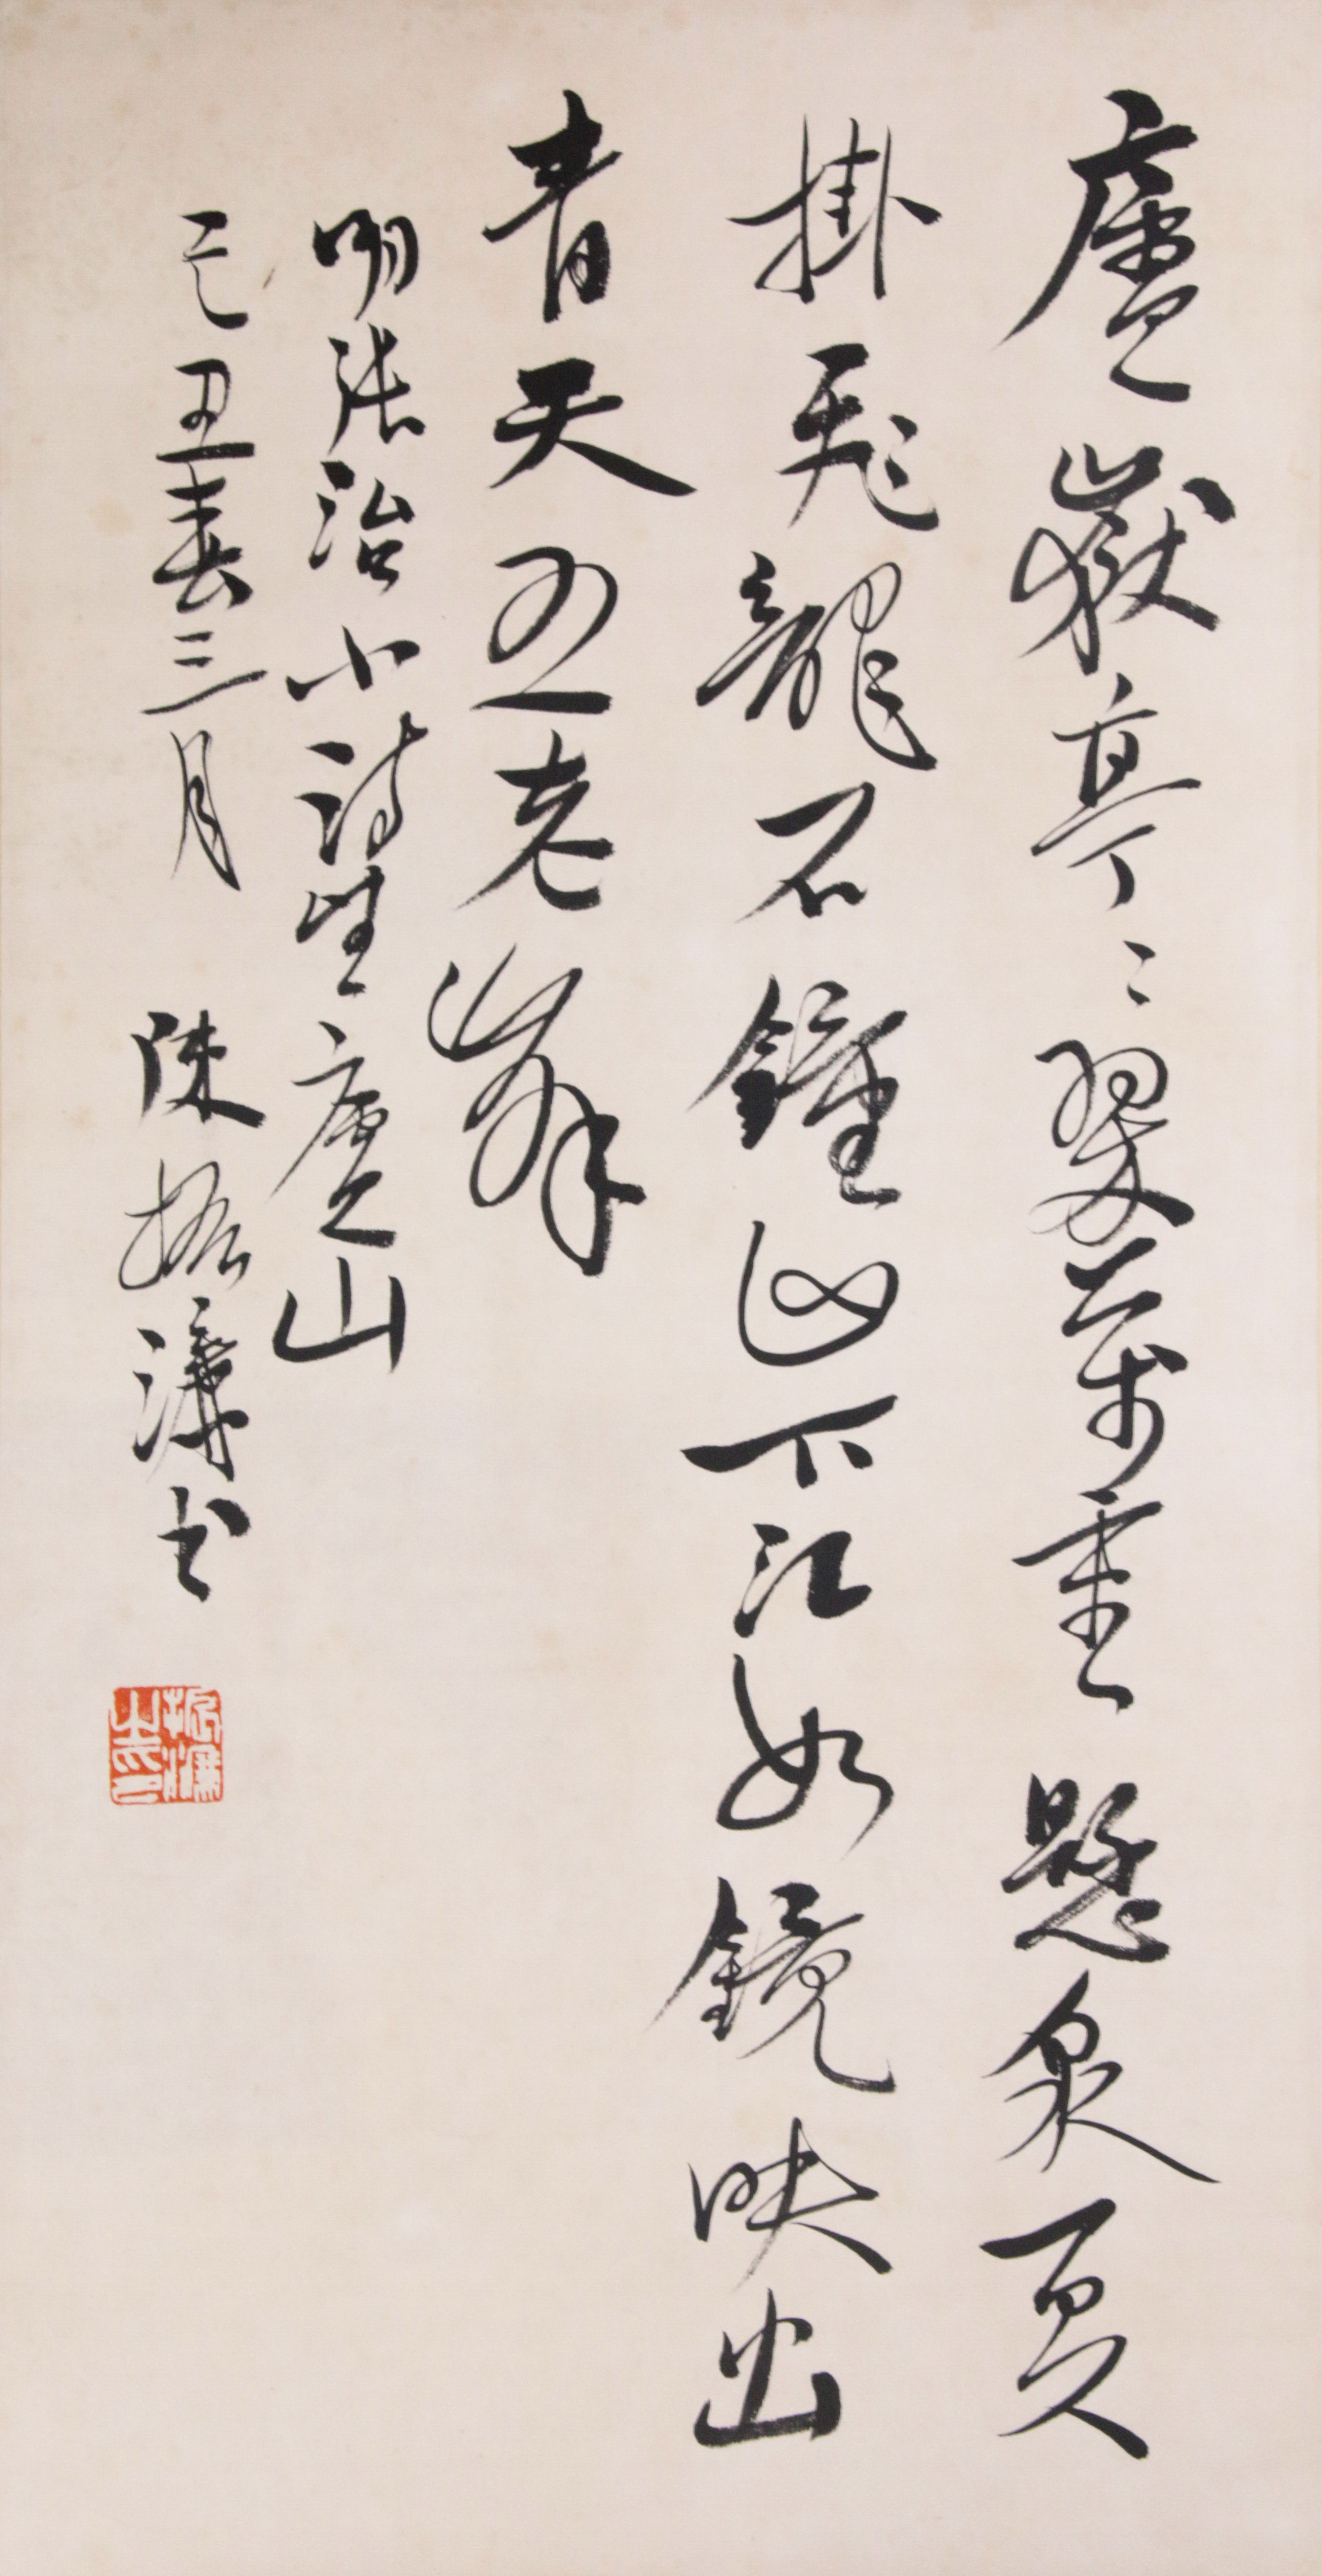 廬嶽亭〻翠萬重懸泉夏
掛飛龍石鐘山下江如鏡映出
青天五老峯
明張治小詩望廬山
己丑春三月 陳振濂書
振濂之印